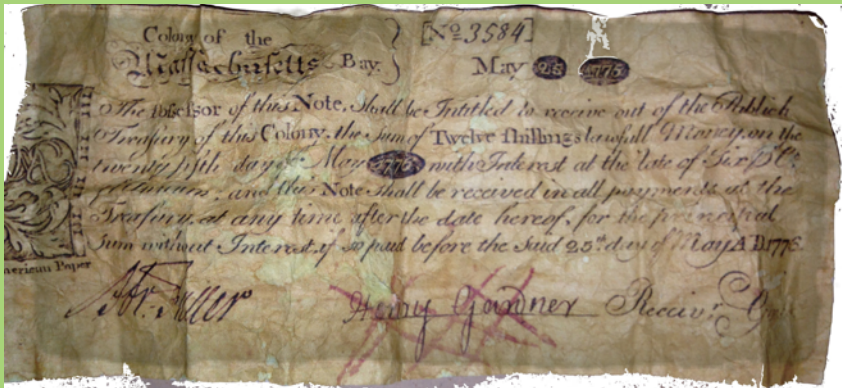 Colony of the [No 3584]
Massachusetts Bay. May 25 1775.
The Possessor of this Note, Shall be Intitled to receive out of the Publick
Treasury of this Colony, the Sum of Twelve shillings lawfull Money, on the
twenty fifth day of May with Interest at the rate of Six P Ct
and this Note Shall be received in all payments at the
Treasury, at any time after the date hereof, for the principal
Sum without Interest, if so paid before the Said 25th day of May A D 1776.
merican Paper
Henry Gardner Receivr Genl